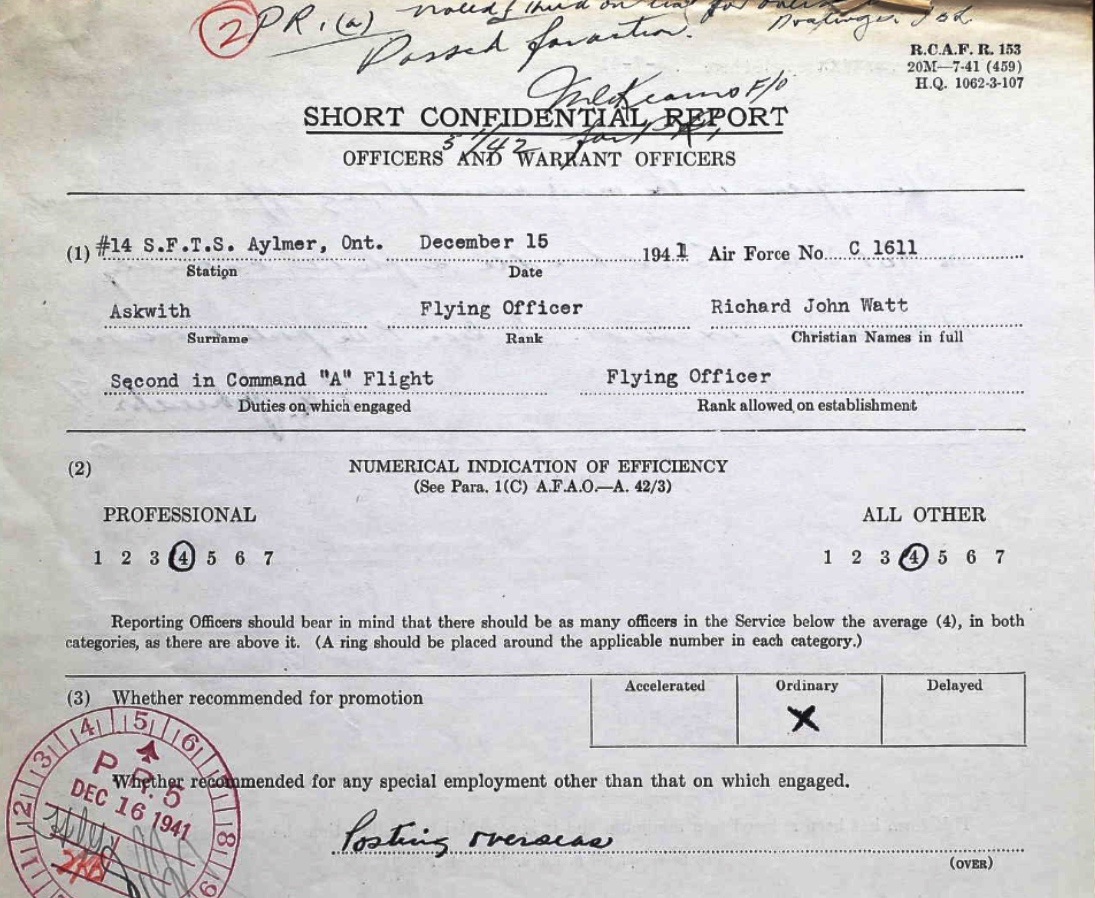 2 P.R.1(a) Noted
Passed for action.
F/O
R.C.A.F. R. 153
20M—7-41 (459)
H.Q. 1062-3-107
SHORT CONFIDENTIAL REPORT
5/1/42 for
OFFICERS AND WARRANT OFFICERS
(1) #14 S.F.T.S. Aylmer, Ont. December 15 1941 Air Force No. C 1611
Station Date
Askwith Flying Officer Richard John Watt
Surname Rank Christian Names in full
Second in Command "A" Flight Flying Officer
Duties on which engaged Rank allowed on establishment
(2) NUMERICAL INDICATION OF EFFICIENCY
(See Para. 1(C) A.F.A.O.—A. 42/3)
PROFESSIONAL ALL OTHER
1 2 3 4 5 6 7 1 2 3 4 5 6 7
Reporting Officers should bear in mind that there should be as many officers in the Service below the average (4), in both
categories, as there are above it. (A ring should be placed around the applicable number in each category.)
(3) Whether recommended for promotion Accelerated Ordinary Delayed
X
Whether recommended for any special employment other than that on which engaged.
1 2 3 4 5 6 8 9
P.R.5
DEC 16 1941
Posting overseas
(OVER)